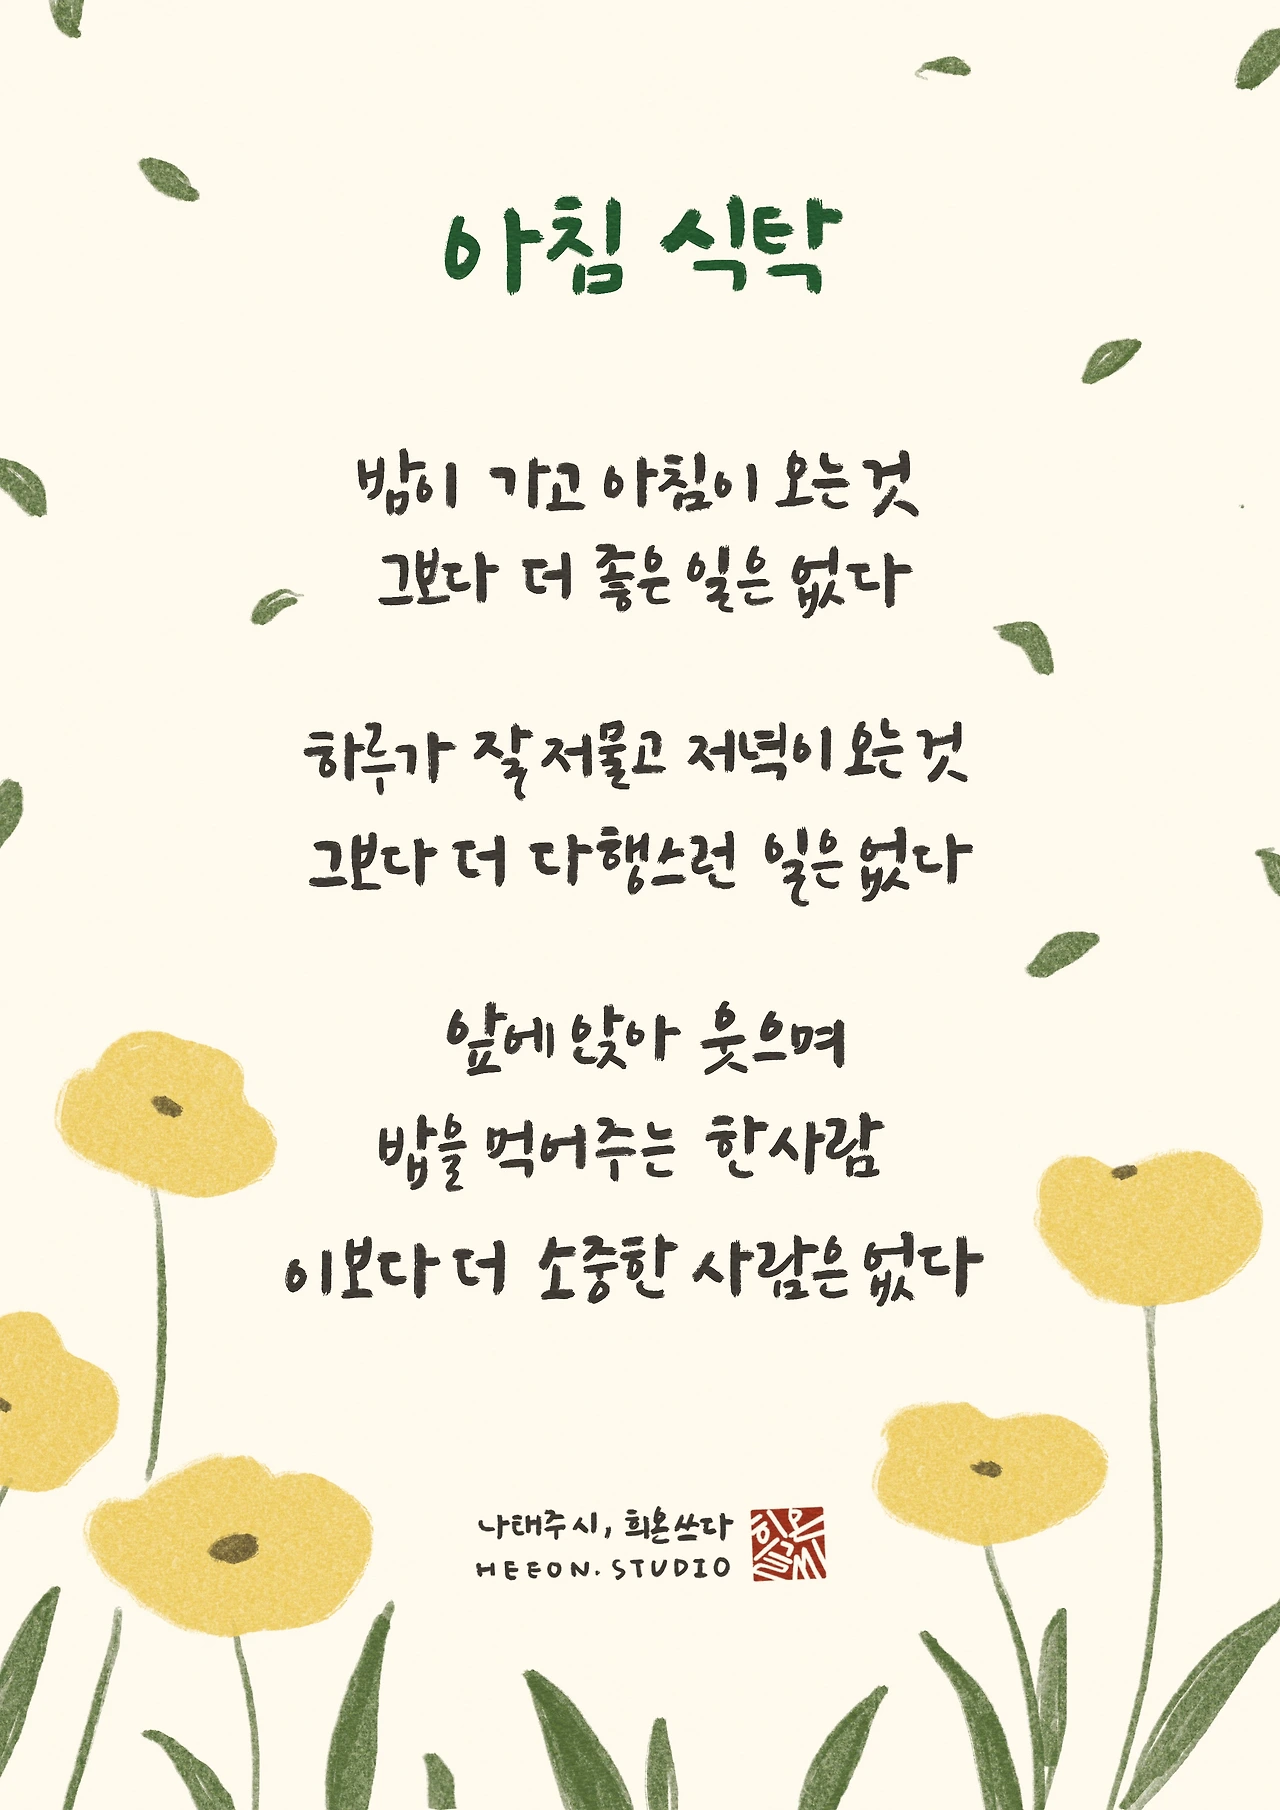 아침 식탁
밤이 가고 아침이 오는 것
그보다 더 좋은 일은 없다
하루가 잘 저물고 저녁이 오는 것
그보다 더 다행스런 일은 없다
앞에 앉아 웃으며
밥을 먹어주는 한 사람
이보다 더 소중한 사람은 없다
나태주 시, 희온 쓰다
HEEON.STUDIO
희온글씨